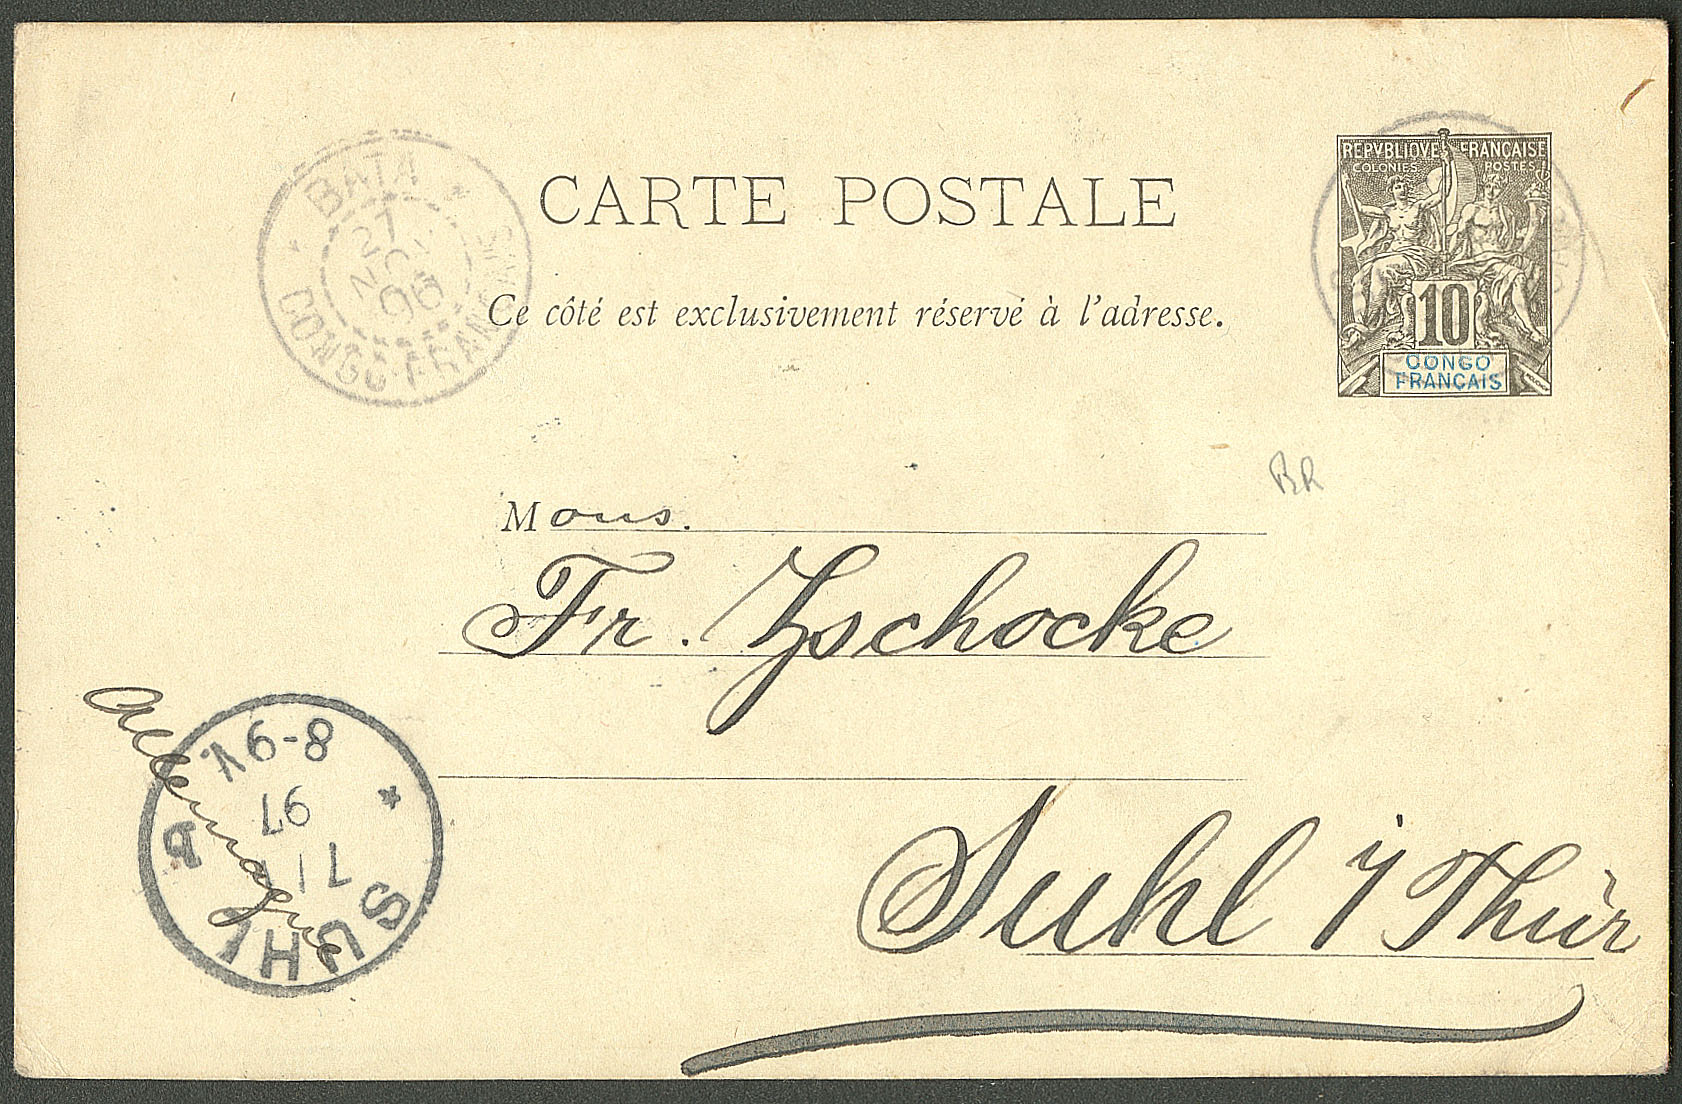 REPVBLIQVE FRANÇAISE
COLONIES POSTES
10
CONGO
FRANÇAIS
BATA
27
NOV
96
CONGO FRANÇAIS
CARTE POSTALE
Ce côté est exclusivement réservé à l'adresse.
BR
Mons.
Fr. Zschocke
Allemagne
Suhl i/Thür
SUHL
7 1
97
8-9V